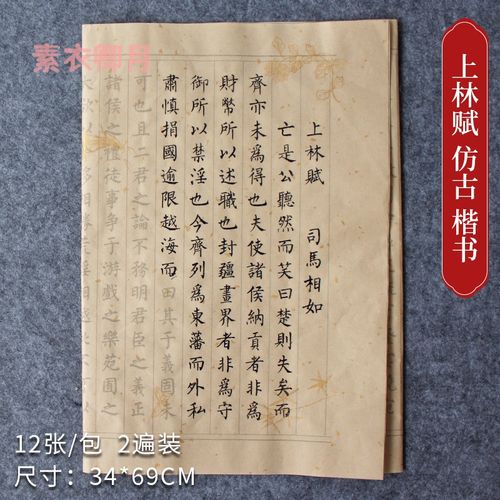 素衣卿月
上林赋 仿古 楷书
上林賦 司馬相如
亡是公聽然而笑曰楚則失矣而
齊亦未為得也夫使諸侯納貢者非為
財幣所以述職也封疆畫界者非為守
御所以禁淫也今齊列為東藩而外私
肅慎捐國逾限越海而田其于義固未
可也且二君之論不務明君臣之義正
諸侯之禮徒事爭于游戲之樂苑囿之
12张/包 2遍装
尺寸：34*69CM